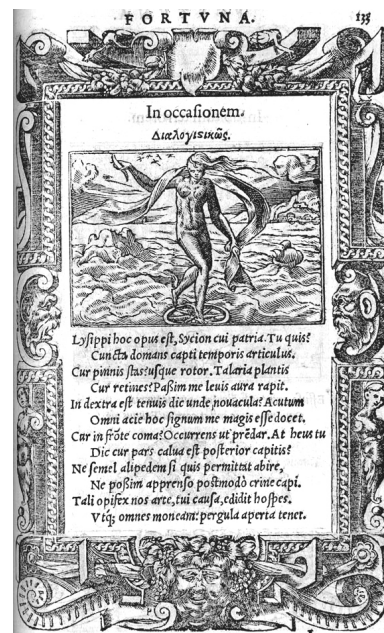 FORTVNA. 135
In occasionem.
Διαλογιϛικῶς.
Lysippi hoc opus est, Sycion cui patria. Tu quis?
Cuncta domans capti temporis articulus.
Cur pinnis stas? usque rotor. Talaria plantis
Cur retines? Paßim me leuis aura rapit.
In dextra est tenuis dic unde nouacula? Acutum
Omni acie hoc signum me magis esse docet.
Cur in frõte coma? Occurrens ut prẽdar. At heus tu
Dic cur pars calua est posterior capitis?
Ne semel alipedem si quis permittat abire,
Ne poßim apprenso postmodò crine capi.
Tali opifex nos arte, tui causa, edidit hospes.
Vtq; omnes moneam: pergula aperta tenet.